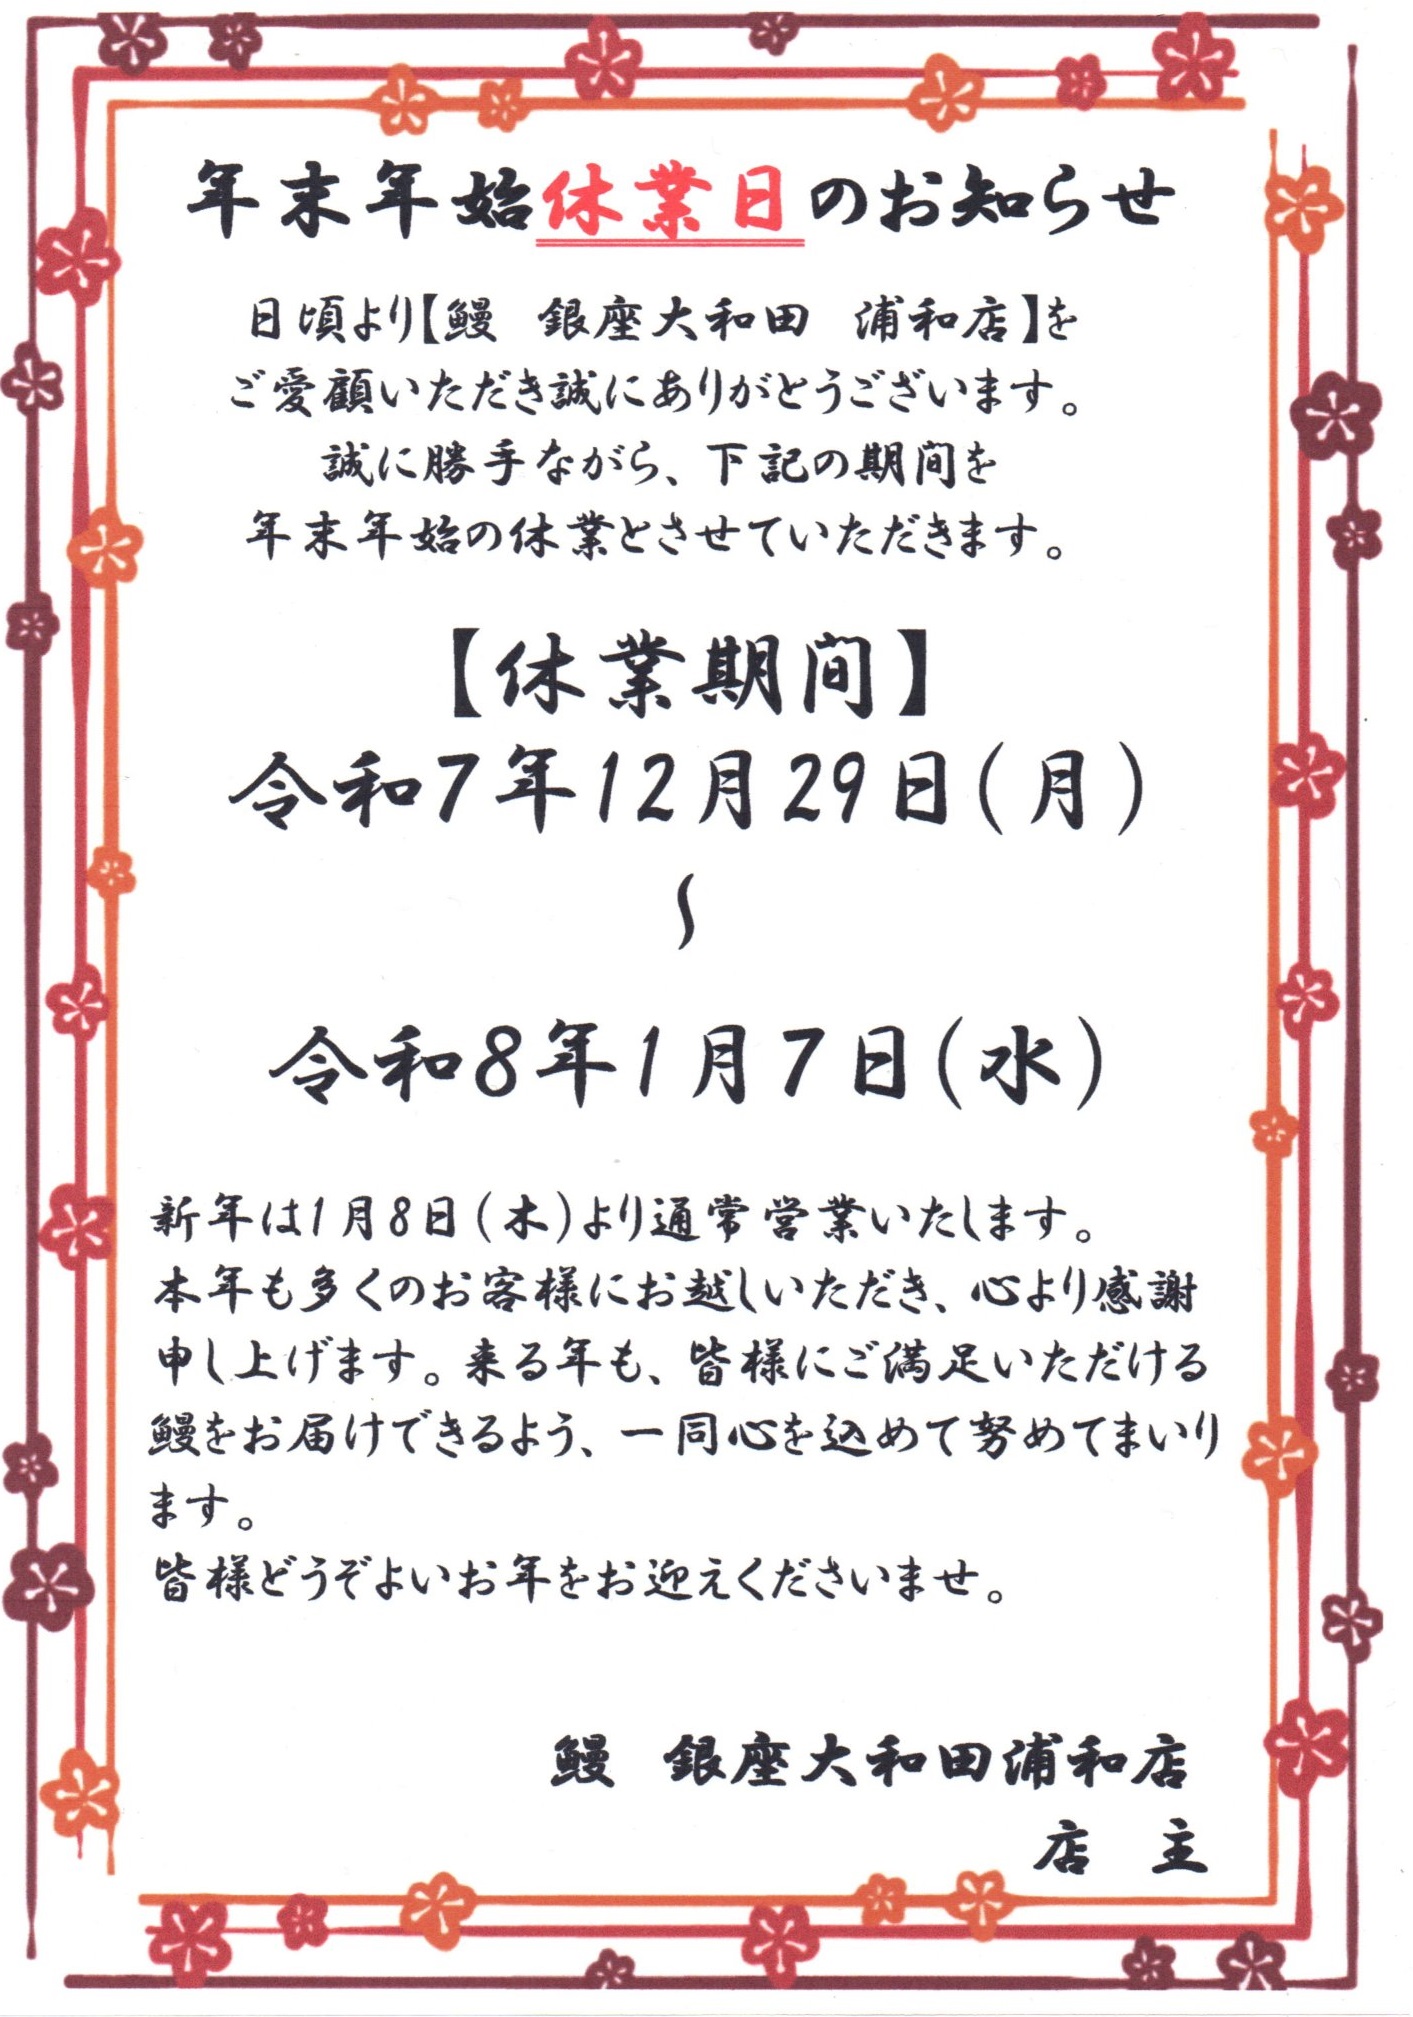 年末年始休業日のお知らせ
日頃より【鰻　銀座大和田　浦和店】を
ご愛顧いただき誠にありがとうございます。
誠に勝手ながら、下記の期間を
年末年始の休業とさせていただきます。
【休業期間】
令和7年12月29日(月)
～
令和8年1月7日(水)
新年は1月8日(木)より通常営業いたします。
本年も多くのお客様にお越しいただき、心より感謝
申し上げます。来る年も、皆様にご満足いただける
鰻をお届けできるよう、一同心を込めて努めてまいり
ます。
皆様どうぞよいお年をお迎えくださいませ。
鰻　銀座大和田浦和店
店　主